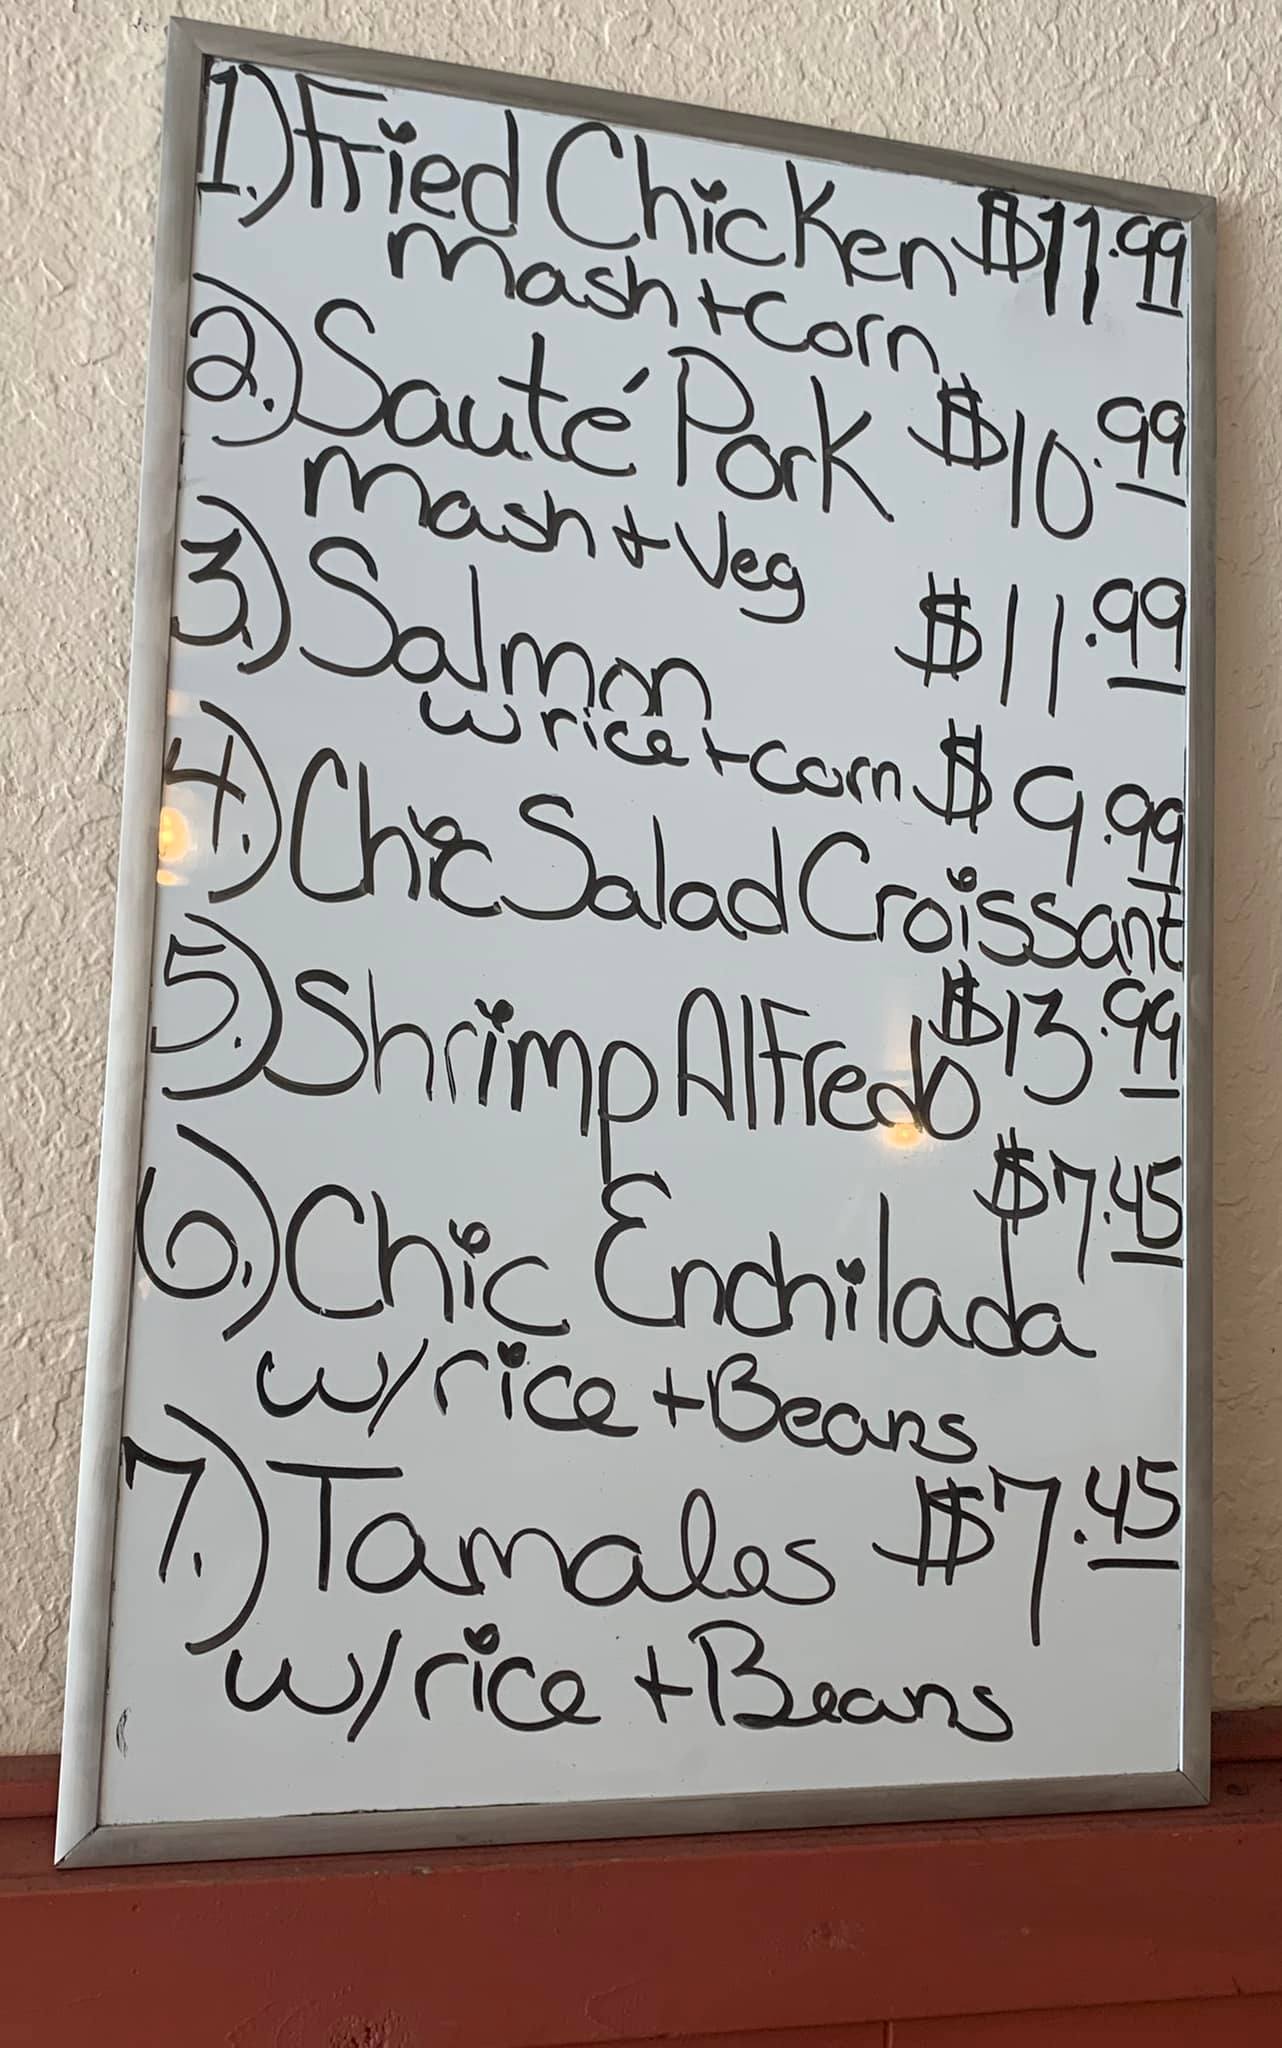 1.) Fried Chicken $11.99
mash + corn
2.) Sauté Pork $10.99
mash + Veg
3.) Salmon $11.99
w rice + corn
4.) Chic Salad Croissant $9.99
5.) Shrimp Alfredo $13.99
6.) Chic Enchilada $7.45
w/rice + Beans
7.) Tamales $7.45
w/rice + Beans